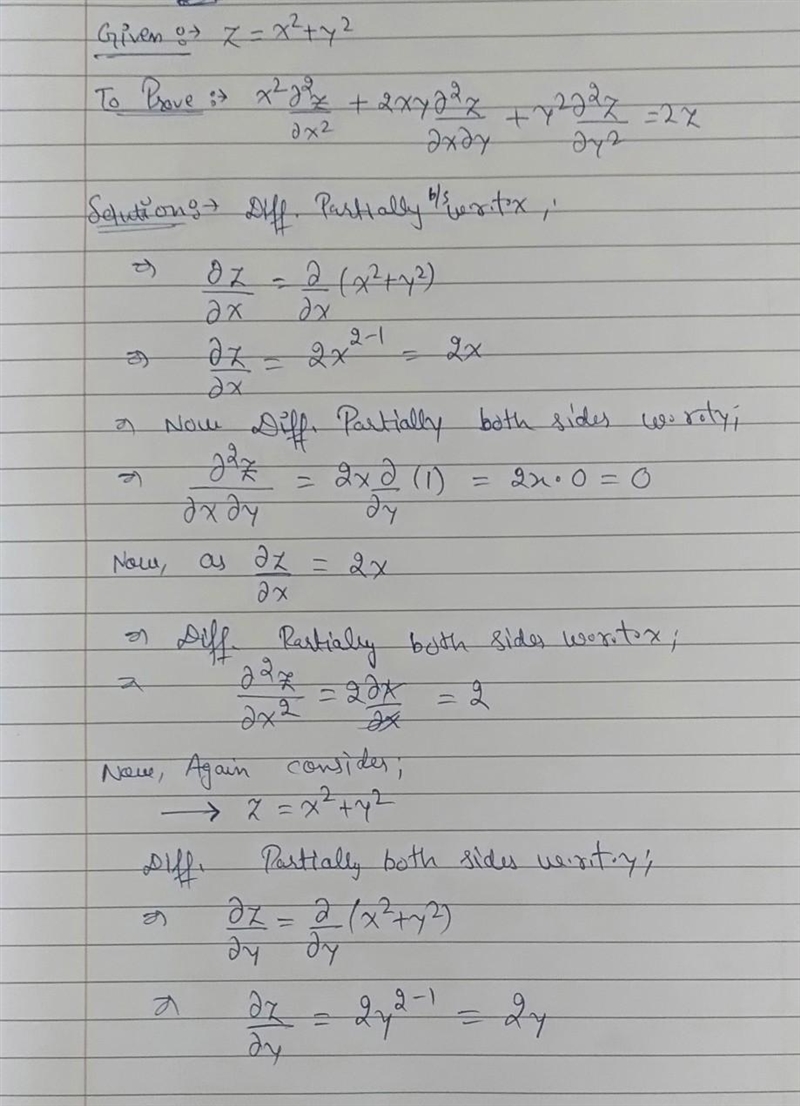 Given :→ z = x² + y²
To Prove :→ x² ∂²z/∂x² + 2xy ∂²z/∂x∂y + y² ∂²z/∂y² = 2z
Solution :→ Diff. Partially b/s w.r.to x ;
⇒ ∂z/∂x = ∂/∂x (x² + y²)
⇒ ∂z/∂x = 2x²⁻¹ = 2x
⇒ Now Diff. Partially both sides w.r.to y ;
⇒ ∂²z/∂x∂y = 2x ∂/∂y (1) = 2x · 0 = 0
Now, as ∂z/∂x = 2x
⇒ Diff. Partially both sides w.r.to x ;
⇒ ∂²z/∂x² = 2 ∂x/∂x = 2
Now, Again consider ;
→ z = x² + y²
Diff. Partially both sides w.r.to y ;
⇒ ∂z/∂y = ∂/∂y (x² + y²)
⇒ ∂z/∂y = 2y²⁻¹ = 2y